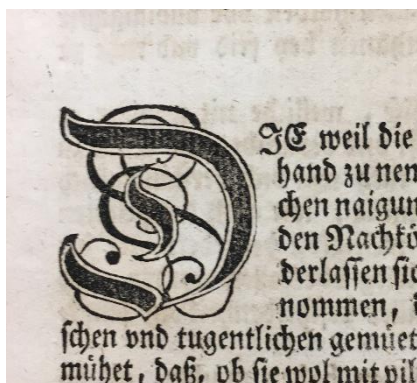 DIE weil die
hand zu nen
chen naigun
den Nachkö
derlassen sic
nommen,
schen vnd tugentlichen gemüet
mühet, daß, ob sie wol mit vil